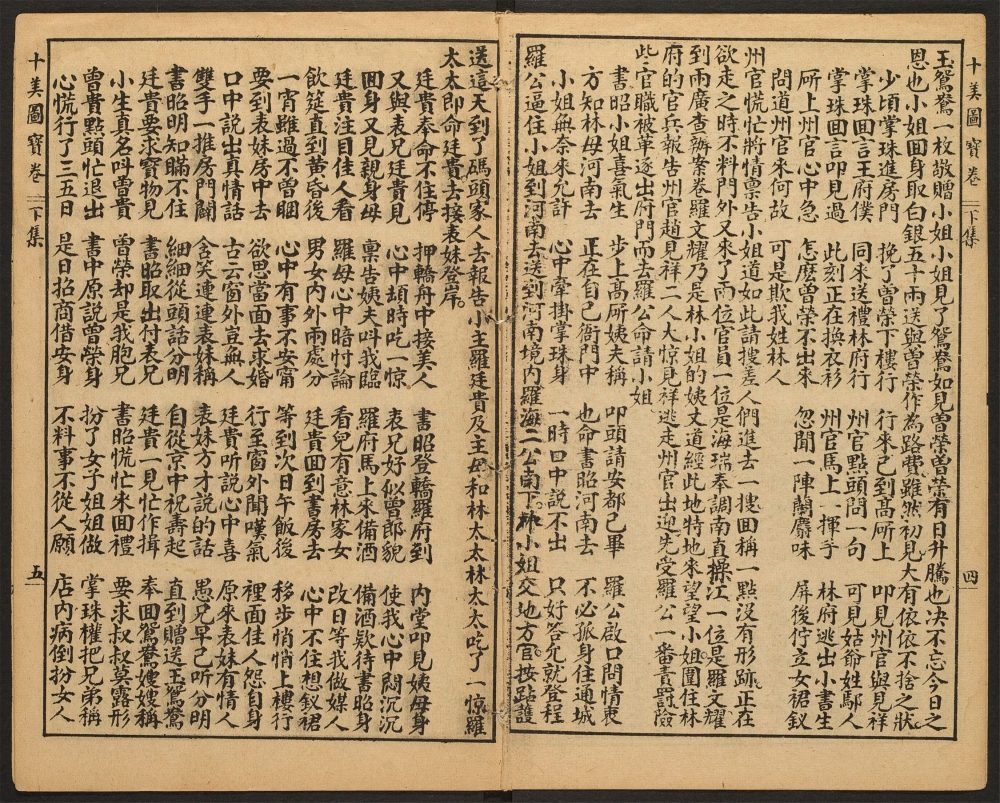 十美圖寶卷 下集 四
玉鴛鴦一枚敬贈小姐小姐見了鴛鴦如見曾榮曾榮有日升騰也决不忘今日之
恩也小姐囬身取白銀五十兩送與曾榮作為路費雖然初見大有依依不捨之狀
少頃掌珠進房門 挽了曾榮下樓行 行來已到高所上 叩見州官與見祥
掌珠囬言王府僕 同來送禮林府行 州官點頭問一句 可見姑爺姓鄢人
掌珠囬言叩見過 此刻正在換衣衫 州官馬上一揮手 林府逃出小書生
所上州官心中急 怎麽曾榮不出來 忽聞一陣蘭麝味 屏後佇立女裙釵
問道州官來何故 可是欺我姓林人
州官慌忙將情禀告小姐道如此請搜差人們進去一搜囬稱一點没有形跡正在
欲走之時不料門外又來了兩位官員一位是海瑞奉調南直操江一位是羅文耀
到兩廣查辦案卷羅文耀乃是林小姐的姨丈道經此地特地來望望小姐圍住林
府的官兵報告州官趙見祥二人大惊見祥逃走州官出迎先受羅公一番責罰險
些官職被革逐出府門而去羅公命請小姐
書昭小姐喜氣生 步上高所姨夫稱 叩頭請安都已畢 羅公啟口問情衷
方知林母河南去 正在自己衙門中 也命書昭河南去 不必孤身住通城
小姐無奈來允許 心中牽掛掌珠身 一時口中說不出 只好答允就登程
羅公逼住小姐到河南去送到河南境内羅海二公南下林小姐交地方官按站護
送這天到了碼頭家人去報告小主羅廷貴及主母和林太太林太太吃了一惊羅
太太即命廷貴去接表妹登岸
廷貴奉命不住停 押轎舟中接美人 書昭登轎羅府到 内堂叩見姨母身
又與表兄廷貴見 心中頡時吃一惊 表兄好似曾郎貌 使我心中悶沉沉
囬身又見親身母 禀告姨夫呌我臨 羅府馬上來備酒 備酒欵待書昭身
廷貴注目佳人看 羅母心中暗忖論 看兒有意林家女 改日等我做媒人
飲筵直到黄昏後 男女内外兩處分 廷貴囬到書房去 心中不住想釵裙
一宵雖過不曾睏 心中有事不安甯 等到次日午飯後 移步悄悄上樓行
要到表妹房中去 欲思當面去求婚 行至窗外聞嘆氣 裡面佳人怨自身
口中說出真情話 古云窗外豈無人 廷貴听說心中喜 原來表妹有情人
雙手一推房門闢 含笑連連表妹稱 表妹方才説的話 愚兄早已听分明
書昭明知瞞不住 細細從頭話分明 自從京中祝壽起 直到贈送玉鴛鴦
廷貴要求寳物見 書昭取出付表兄 廷貴一見忙作揖 奉囬鴛鴦嫂嫂稱
小生真名呌曾貴 曾榮却是我胞兄 書昭慌忙來囬禮 要求叔叔莫露形
曾貴點頭忙退出 書中原說曾榮身 扮了女子姐姐做 掌珠權把兄弟稱
心慌行了三五日 是日招商借安身 不料事不從人願 店内病倒扮女人
十美圖寶卷 下集 五